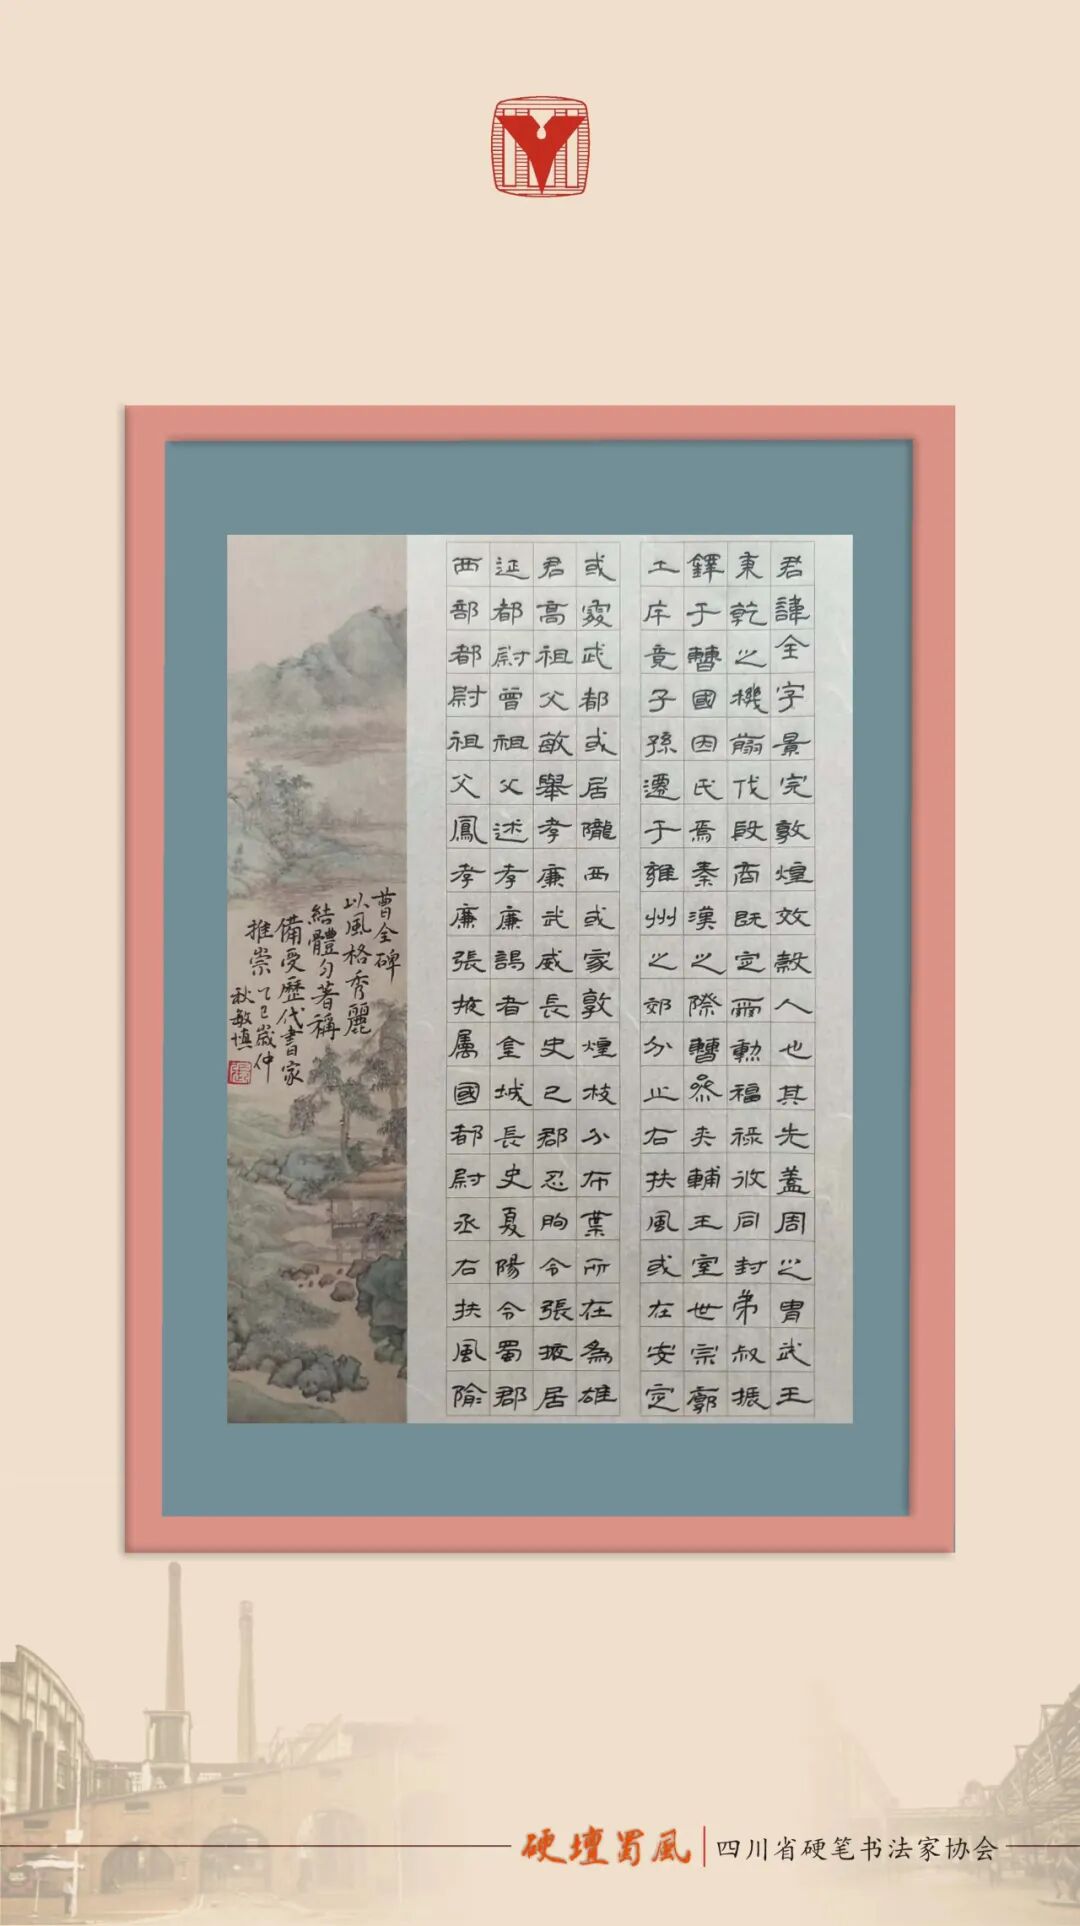 君諱全字景完敦煌效穀人也其先蓋周之胄武王
秉乾之機翦伐殷商既定爾勳福祿攸同封弟叔振
鐸于曹國因氏焉秦漢之際曹參夾輔王室世宗廓
土斥竟子孫遷于雍州之郊分止右扶風或在安定
或處武都或居隴西或家敦煌枝分布葉所在為雄
君高祖父敏舉孝廉武威長史巴郡朐忍令張掖居
延都尉曾祖父述孝廉謁者金城長史夏陽令蜀郡
西部都尉祖父鳳孝廉張掖屬國都尉丞右扶風隃
曹全碑
以風格秀麗
結體勻著稱
備受歷代書家
推崇乙巳歲仲
秋敏慎
硬壇蜀風
四川省硬笔书法家协会